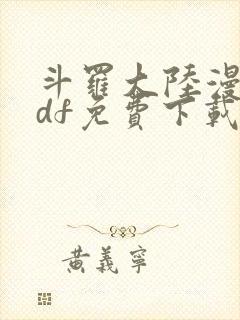 斗羅大陸漫
df免費下載
黃義寧